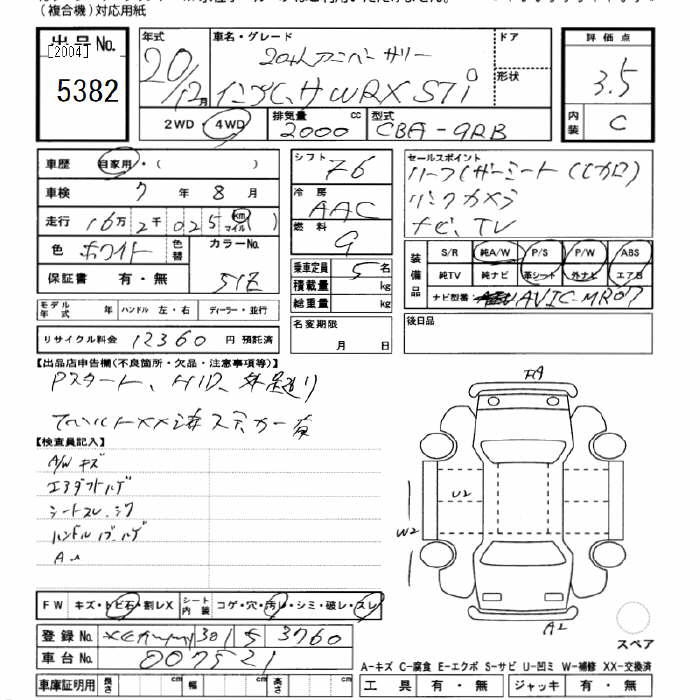 (複合機)対応用紙
出品No.
[2004]
5382
年式
20/12月
車名・グレード
20thアニバーサリー
インプレッサWRX STi
ドア
形状
評価点
3.5
内装
C
2WD・4WD
排気量 cc
2000
型式
CBA-GRB
車歴 自家用・( )
車検 7年8月
走行 16万2千025 km マイル ( )
色 ホワイト
色替
カラーNo.
51E
保証書 有・無
モデル年式 年 ハンドル 左・右 ディーラー・並行
リサイクル料金 12360 円 預託済
シフト
F6
冷房
AAC
燃料
G
乗車定員 5名
積載量 kg
総重量 kg
名変期限
月 日
セールスポイント
ハーフレザーシート(レカロ)
リンクカメラ
ナビ、TV
装備品
S/R 純A/W P/S P/W ABS
純TV 純ナビ 革シート 外ナビ エアB
ナビ型番 AVIC-MR07
後日品
【出品店申告欄(不良箇所・欠品・注意事項等)】
Pスタート、HID、
【検査員記入】
A/Wキズ
エアダクトハゲ
シートスレ、シワ
FW キズ・トビ石・割レX
シート内装 コゲ・穴・汚レ・シミ・破レ・スレ
登録No. 301 3760
車台No. 007521
車庫証明用 長さ cm 幅 cm 高さ cm
U2
W2
A2
スペア
A-キズ C-腐食 E-エクボ S-サビ U-凹ミ W-補修 XX-交換済
工具 有・無 ジャッキ 有・無